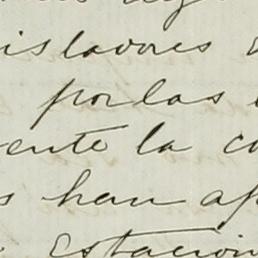 isladores
por las
ente la co
s han ap
estacion